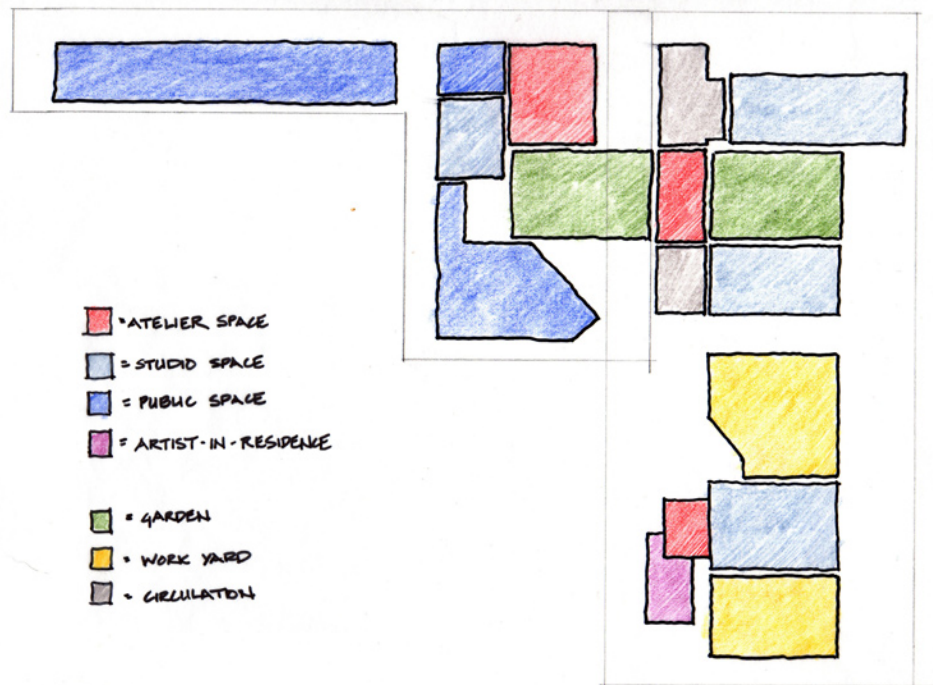 = ATELIER SPACE
= STUDIO SPACE
= PUBLIC SPACE
= ARTIST-IN-RESIDENCE
= GARDEN
= WORK YARD
= CIRCULATION